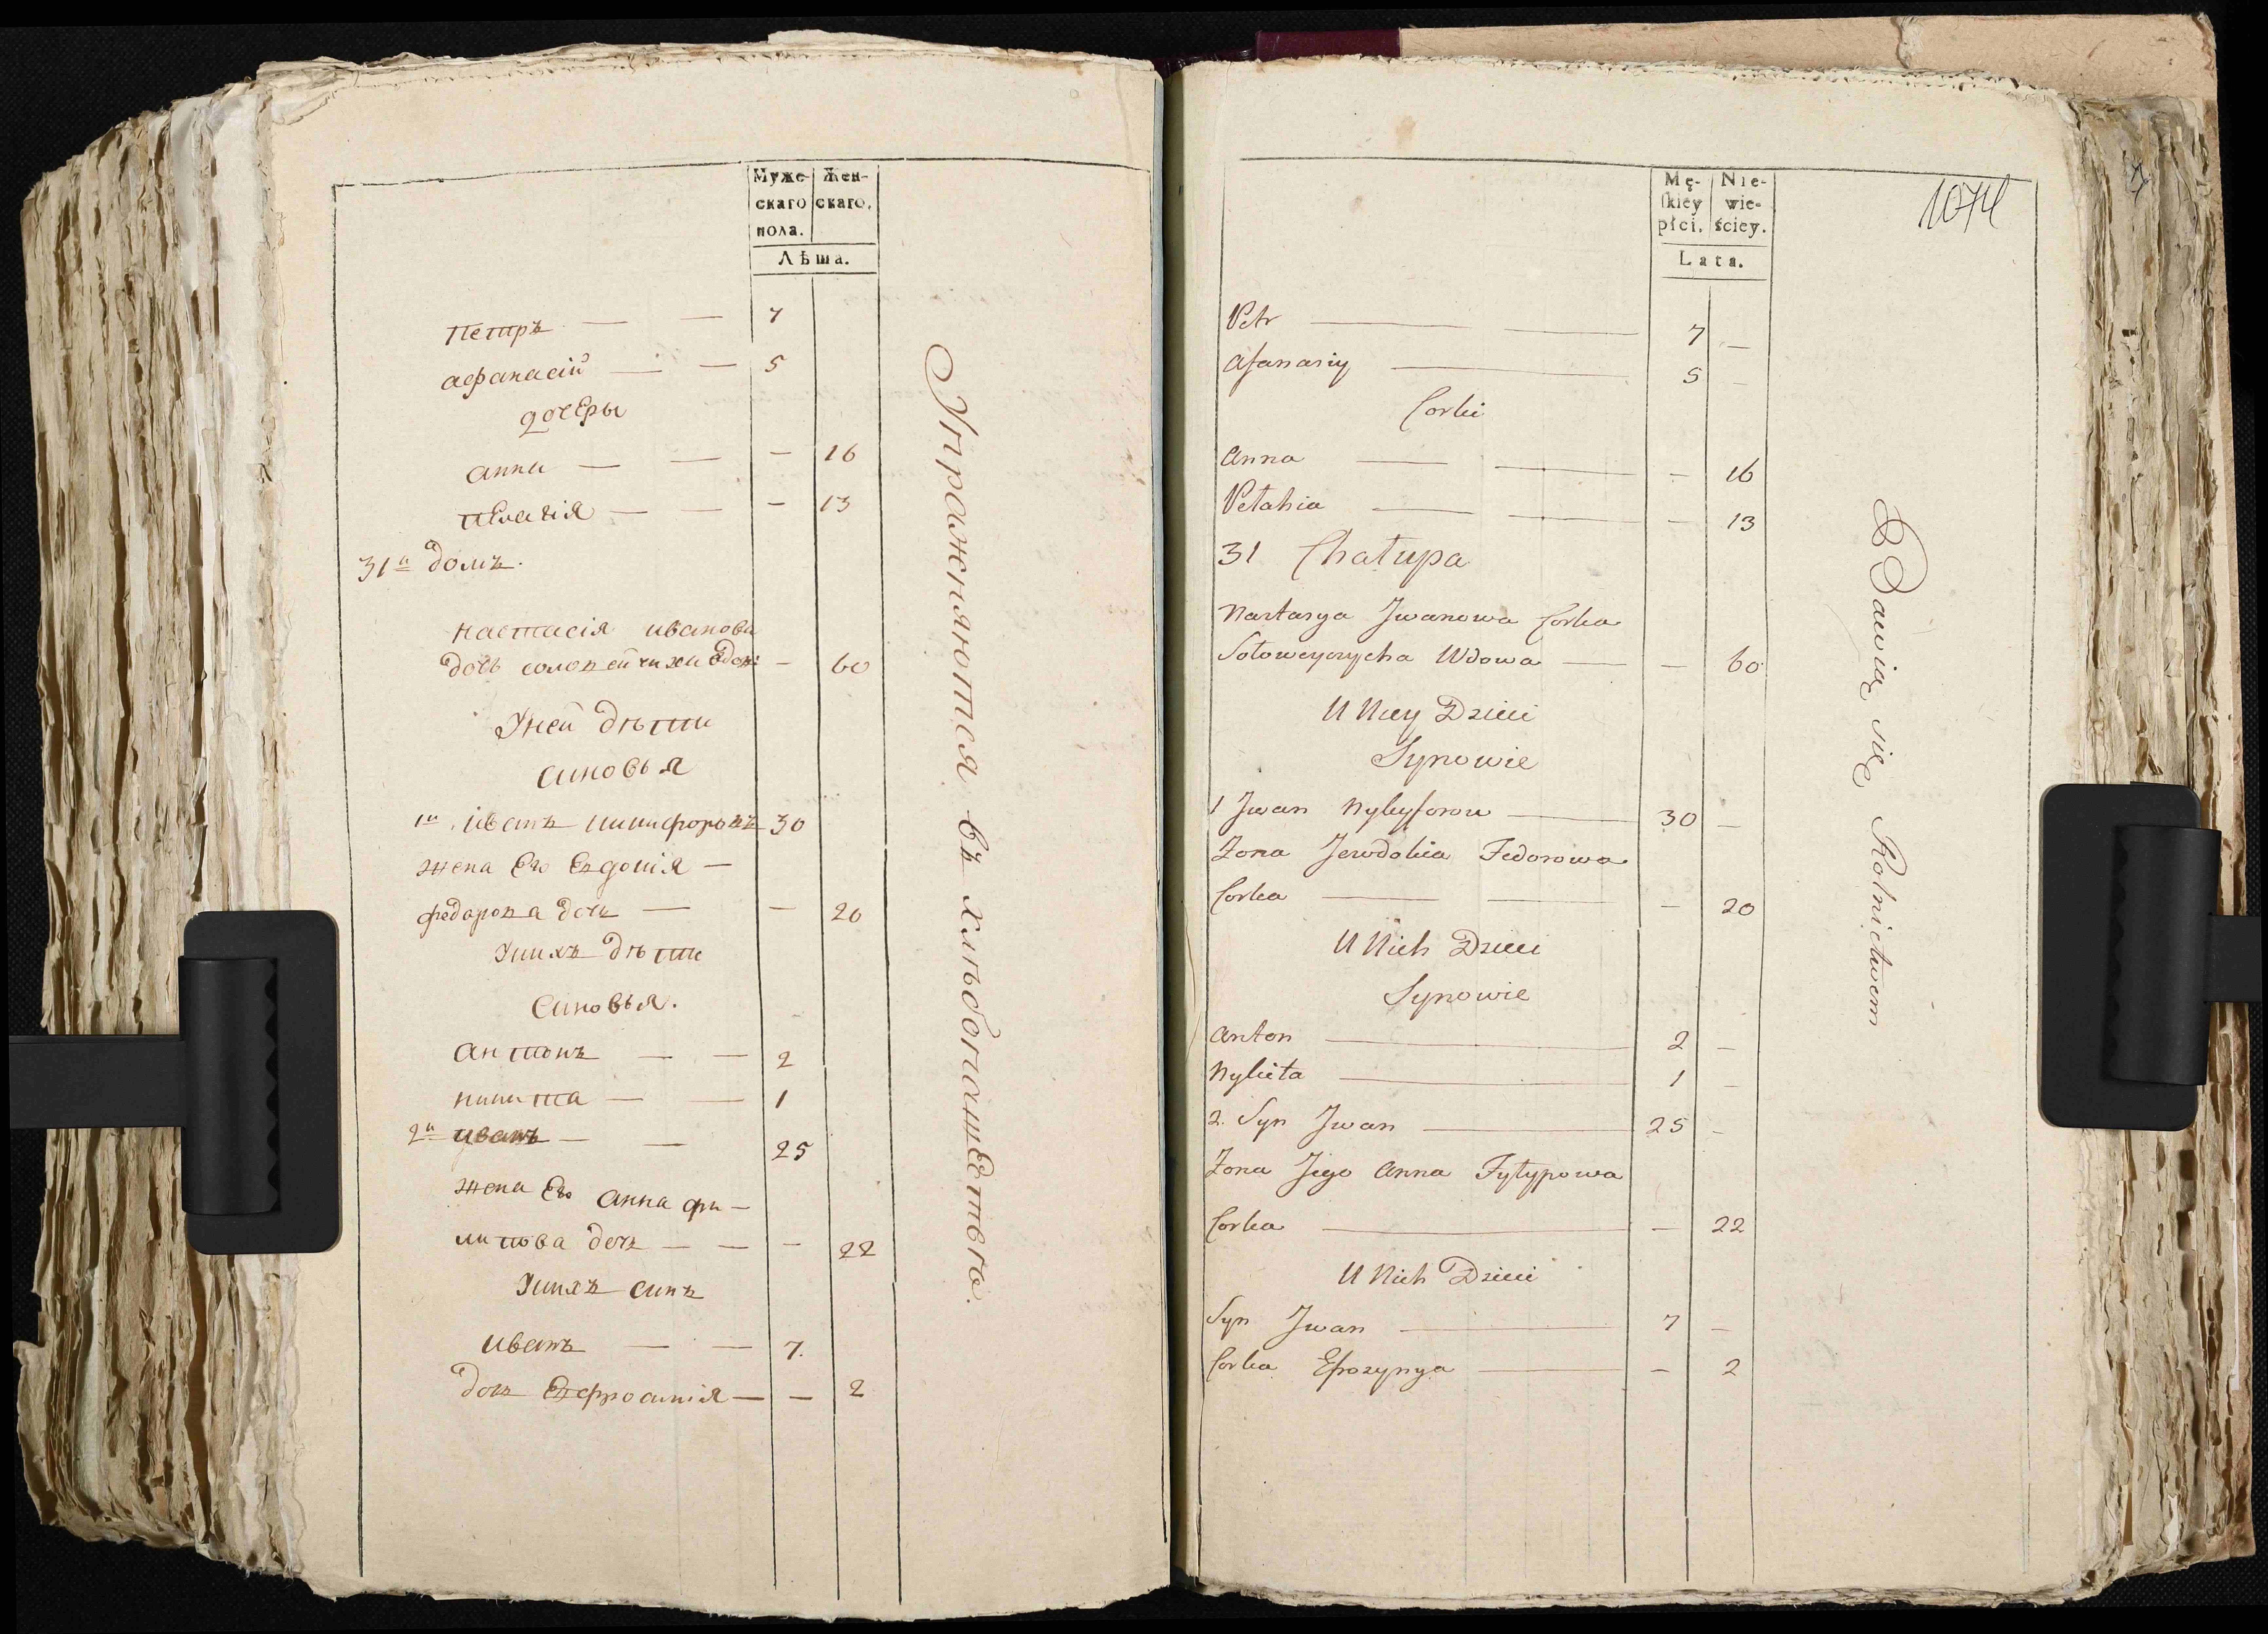 Муже- Жен-
скаго скаго.
пола.
Лѣта.
Петръ — — 7
афанасій — — 5
дочеры
анна — — — 16
пелагія — — — 13
31й домъ.
настасія иванова
дочь соловейчиха вдов: — 60
У ней дѣти
синовья
1й иванъ никифоровъ 30
жена Его Евдокія —
федарова дочь — — 20
У нихъ дѣти
Синовья.
Антонъ — — 2
никита — — 1
2й иванъ — — 25
жена Его Анна фи-
липова дочь — — — 22
У нихъ синъ
иванъ — — 7.
дочь Ефросинія — — 2
Упражняются въ хлѣбопашествѣ.
1074
Mę- Nie-
skiey wie-
płci. ściey.
Lata.
Petr — — 7 —
Afanasiy — 5 —
Corki
Anna — — — 16
Pełahia — — — 13
31 Chałupa
Nastasya Jwanowa Corka
Sołoweyczycha Wdowa — — 60
U Niey Dzieci
Synowie
1 Jwan Nykyforow — 30 —
Zona Jewdokia Fedorowa
Corka — — — 20
U Nich Dzieci
Synowie
Anton — 2 —
Nykita — 1 —
2. Syn Jwan — 25 —
Zona Jego Anna Fyłypowa
Corka — — 22
U Nich Dzieci
Syn Jwan — 7 —
Corka Efrozynya — — 2
Bawią się Rolnictwem